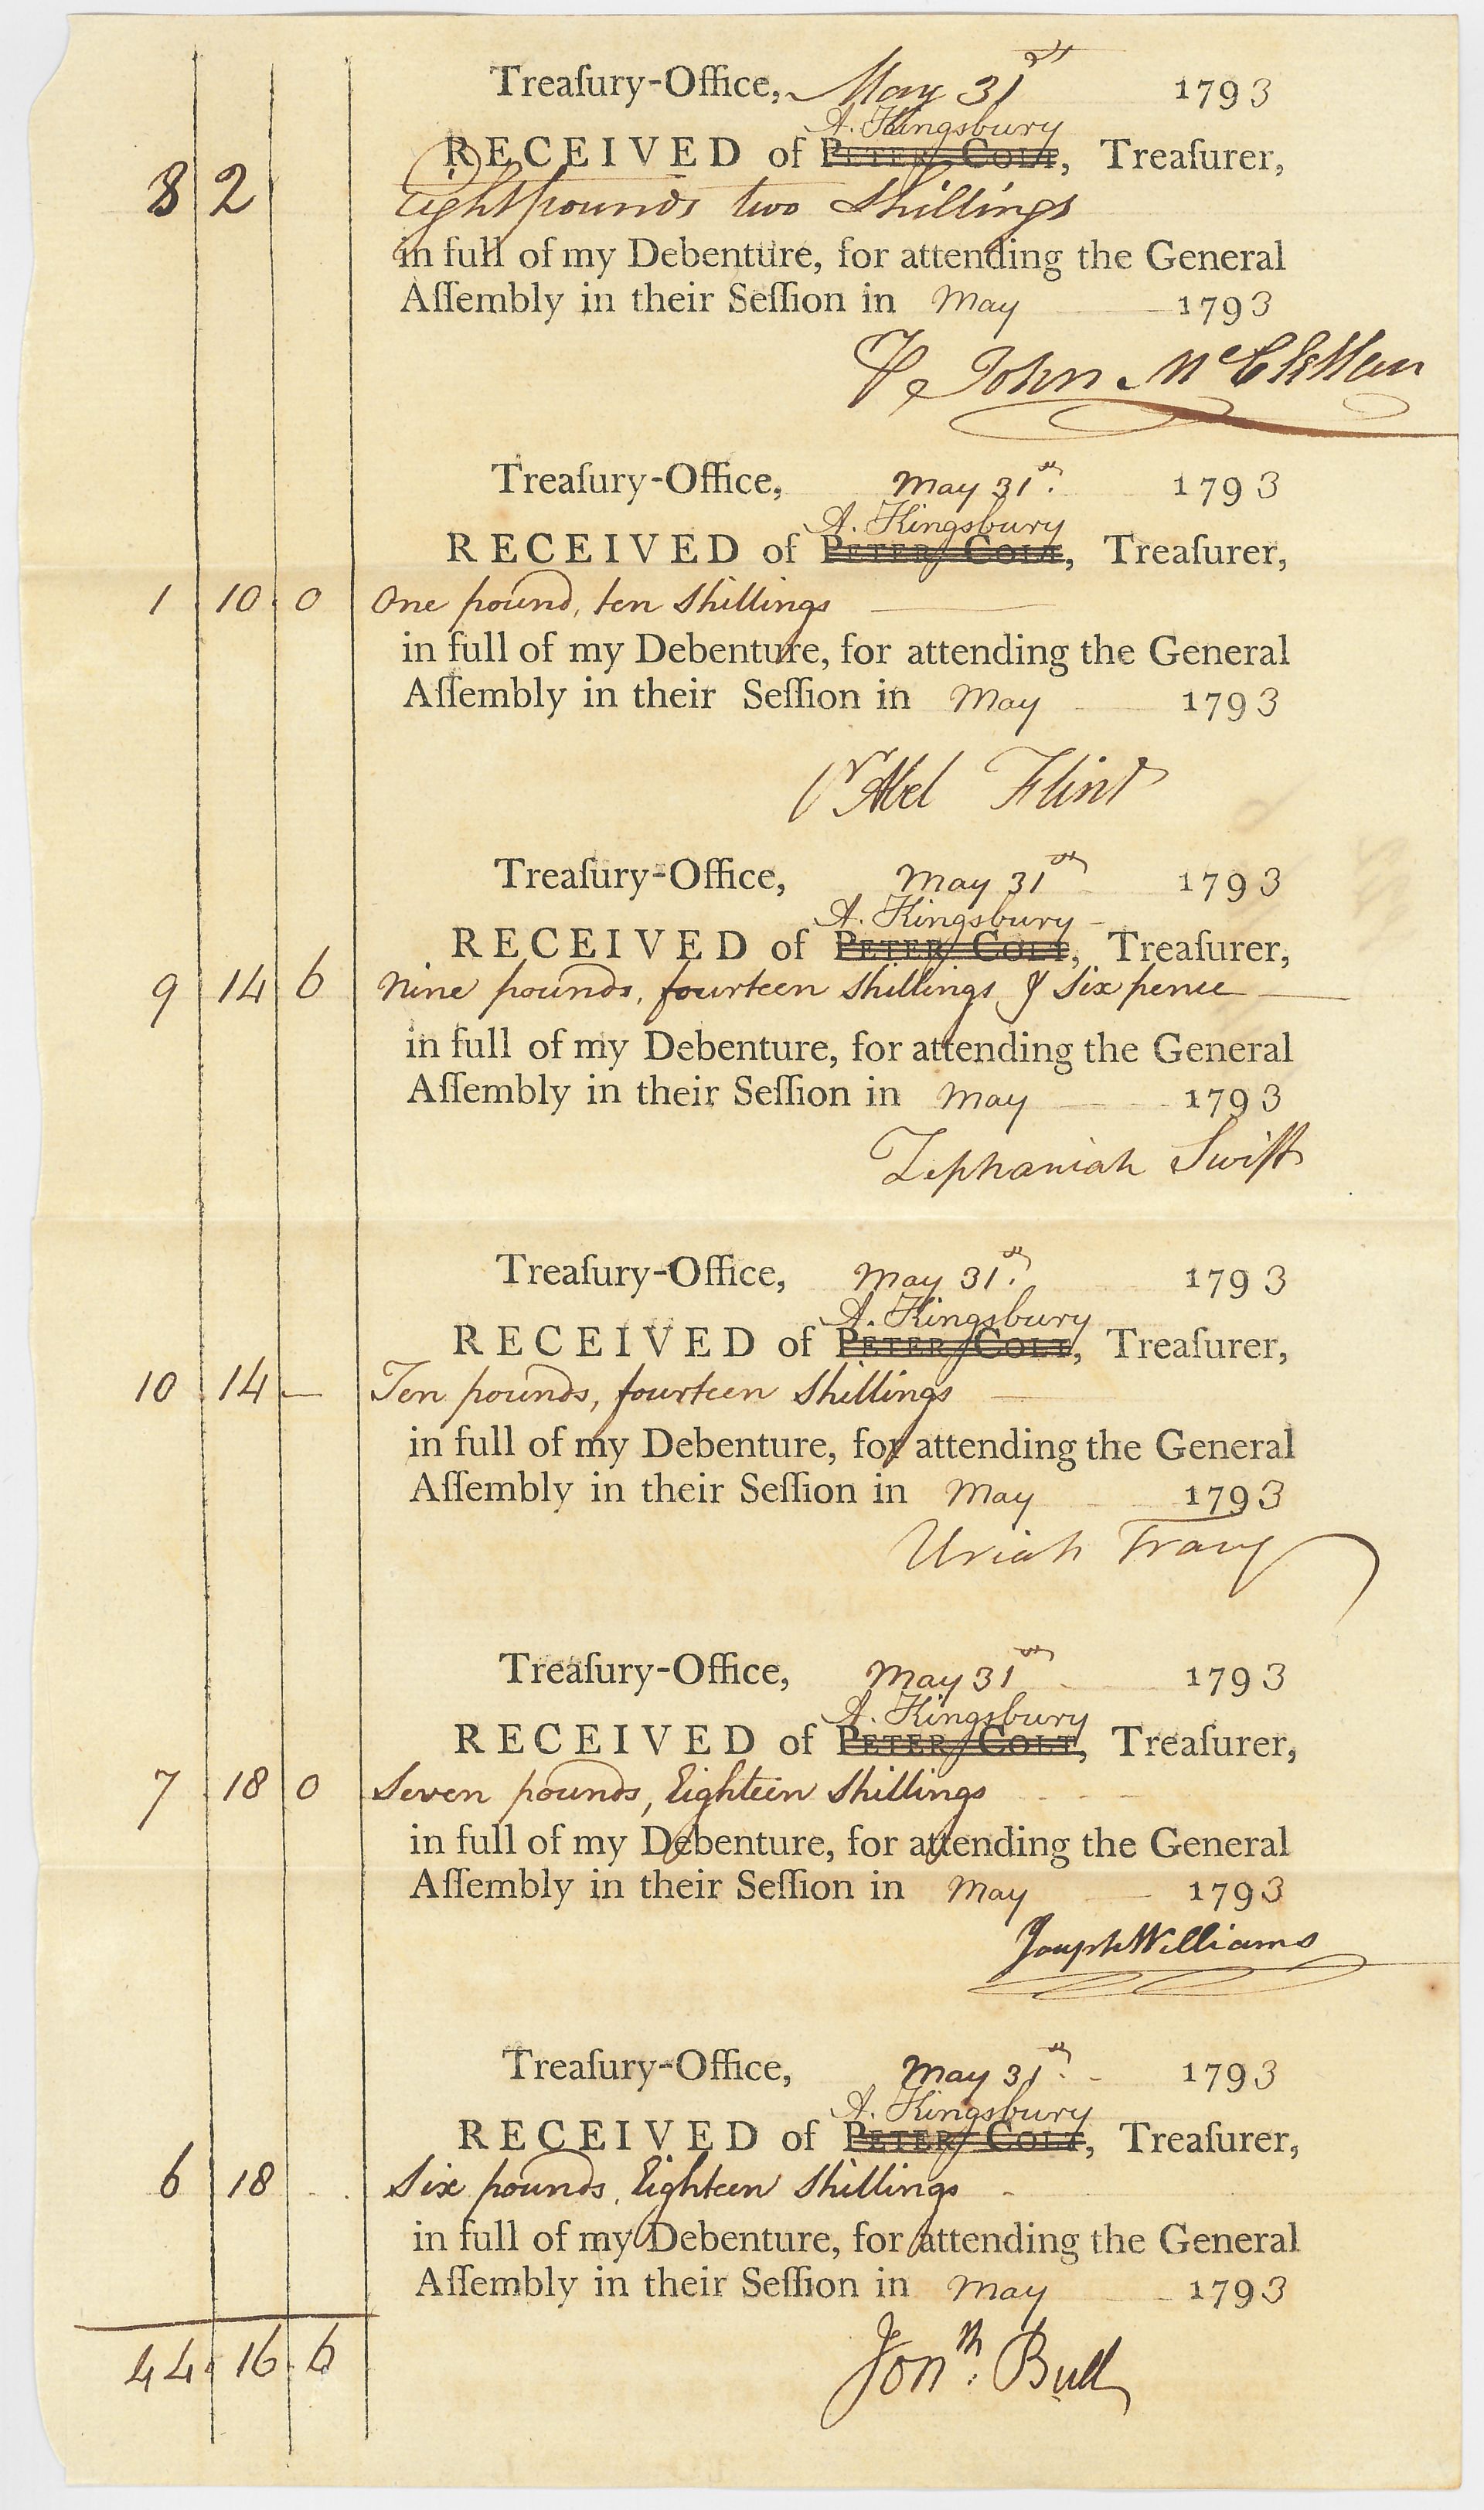 Treaſury-Office, May 31st 1793
A. Kingsbury
RECEIVED of PETER COLT, Treaſurer,
8 2 Eight pounds two Shillings
in full of my Debenture, for attending the General
Aſſembly in their Seſſion in May 1793
John McClellan
Treaſury-Office, May 31st. 1793
A. Kingsbury
RECEIVED of PETER COLT, Treaſurer,
1 10 0 One pound, ten Shillings
in full of my Debenture, for attending the General
Aſſembly in their Seſſion in May 1793
Pr Abel Flint
Treaſury-Office, May 31st 1793
A. Kingsbury
RECEIVED of PETER COLT, Treaſurer,
9 14 6 Nine pounds, fourteen Shillings & Six pence
in full of my Debenture, for attending the General
Aſſembly in their Seſſion in May 1793
Zephaniah Swift
Treaſury-Office, May 31st. 1793
A. Kingsbury
RECEIVED of PETER COLT, Treaſurer,
10 14 — Ten pounds, fourteen Shillings
in full of my Debenture, for attending the General
Aſſembly in their Seſſion in May 1793
Uriah Tracy
Treaſury-Office, May 31st 1793
A. Kingsbury
RECEIVED of PETER COLT, Treaſurer,
7 18 0 Seven pounds, Eighteen Shillings
in full of my Debenture, for attending the General
Aſſembly in their Seſſion in May 1793
Joseph Williams
Treaſury-Office, May 31st. 1793
A. Kingsbury
RECEIVED of PETER COLT, Treaſurer,
6 18 Six pounds, Eighteen Shillings
in full of my Debenture, for attending the General
Aſſembly in their Seſſion in May 1793
44 16 6
Jonth: Bull